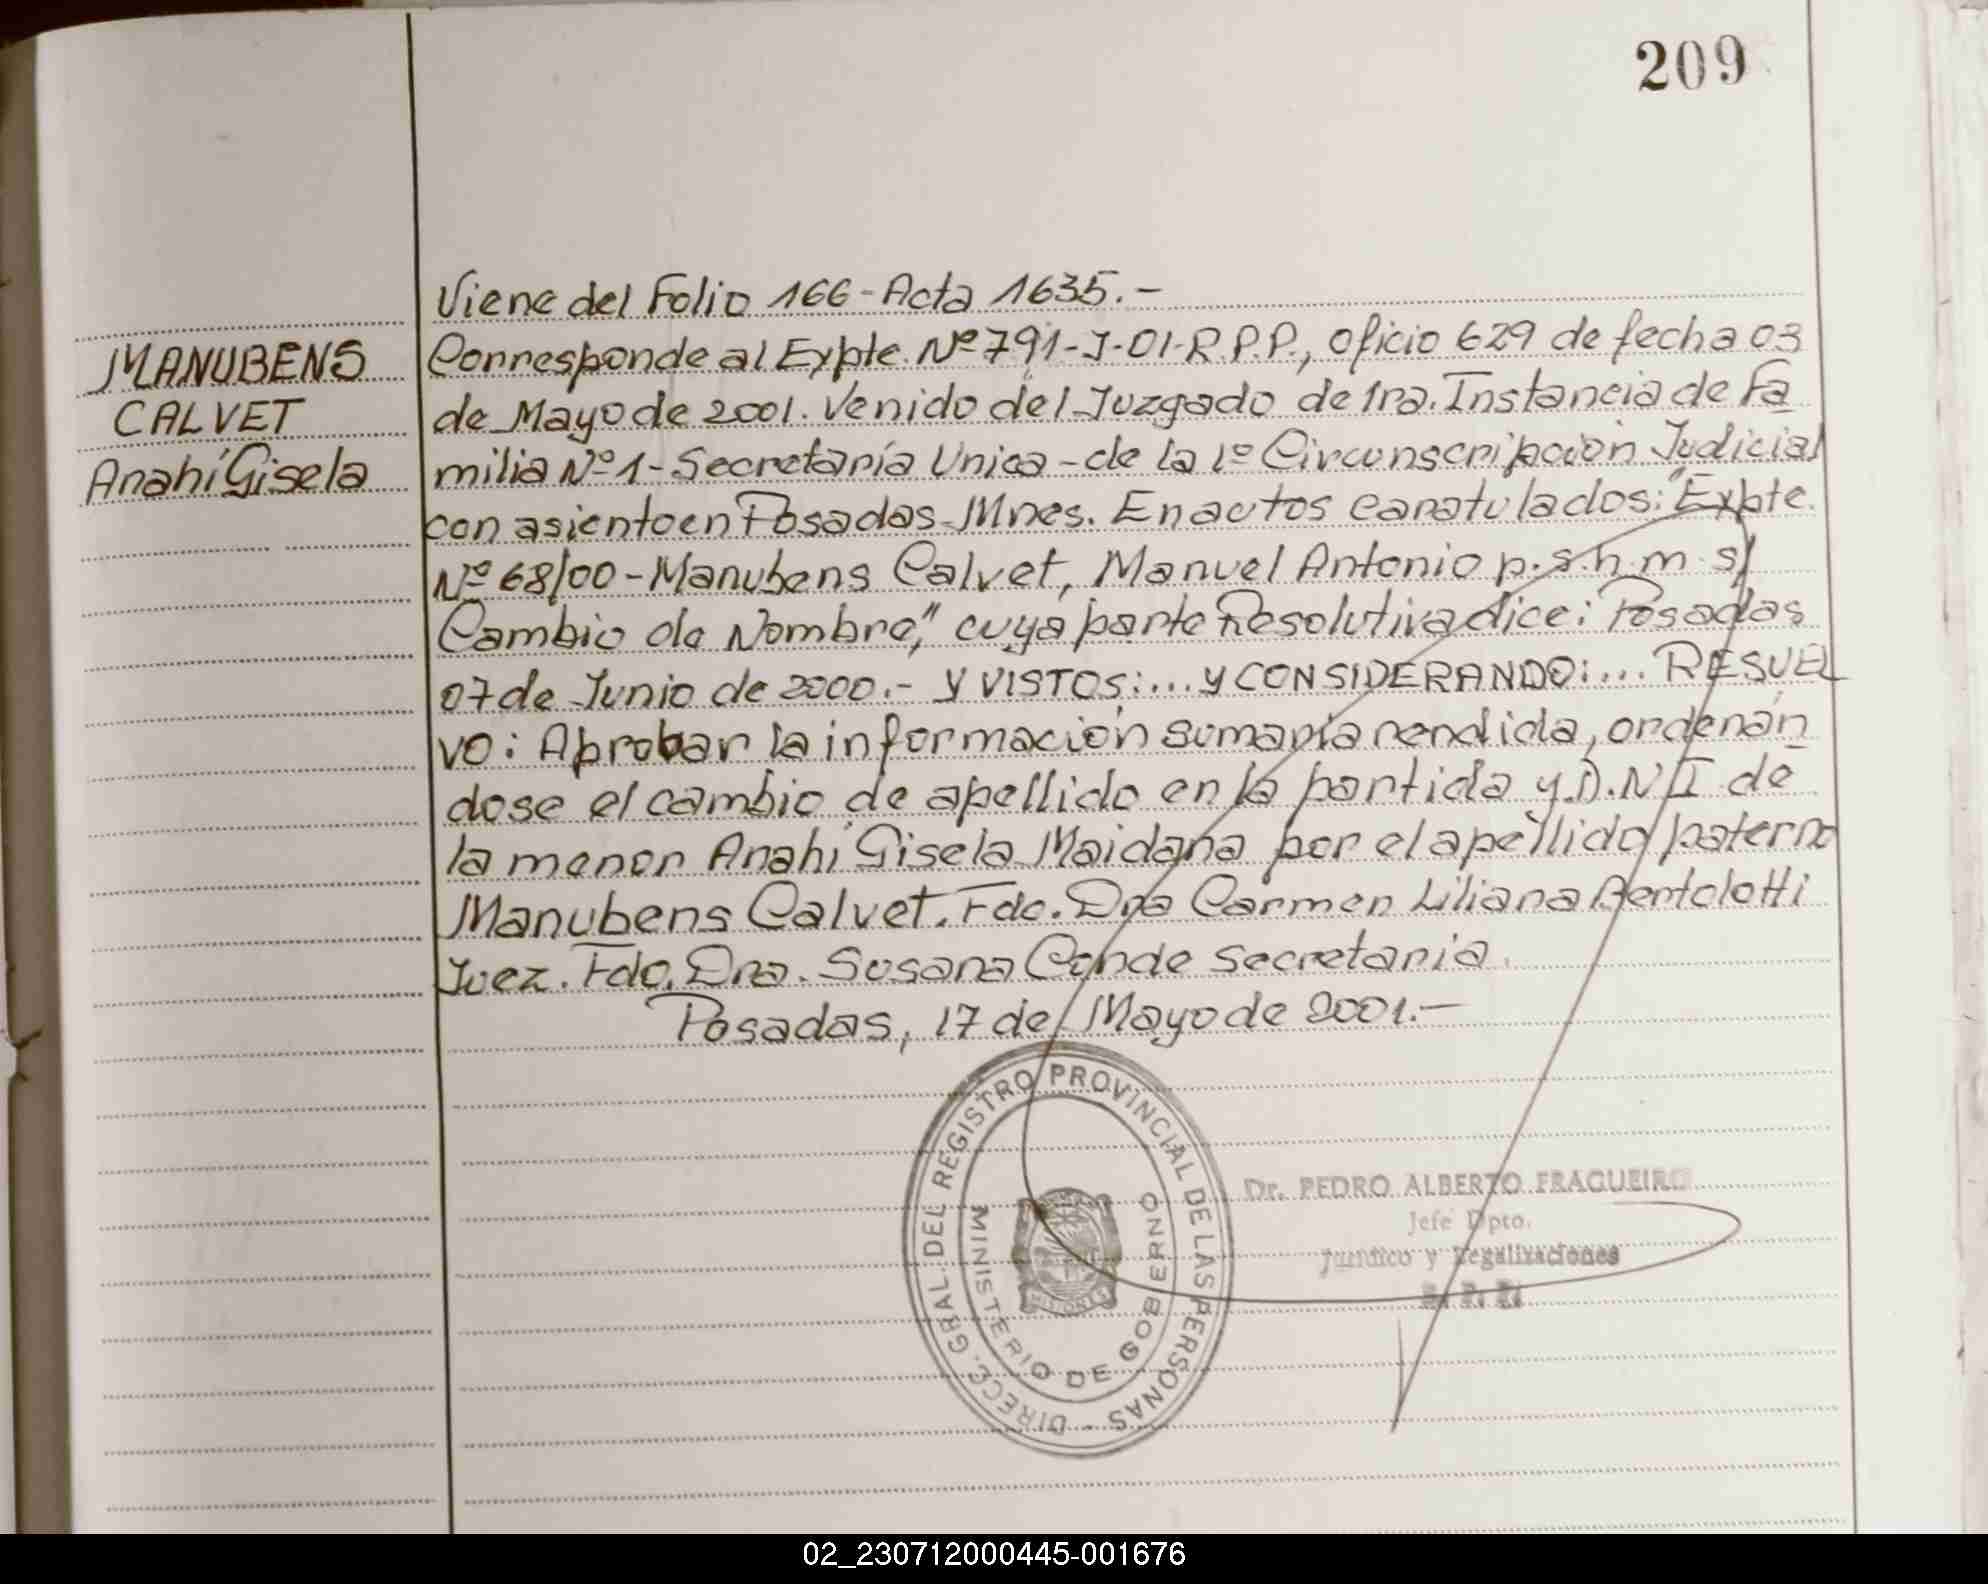 209
Viene del Folio 166 - Acta 1635.-
MANUBENS
CALVET
Anahí Gisela
Corresponde al Expte. Nº 791-J-01-R.P.P., oficio 629 de fecha 03
de Mayo de 2001. Venido del Juzgado de 1ra. Instancia de Fa
milia Nº 1 - Secretaría Unica - de la 1º Circunscripción Judicial
con asiento en Posadas Mnes. En autos caratulados: "Expte.
Nº 68/00 - Manubens Calvet, Manuel Antonio p.s.h.m. s/
Cambio de Nombre", cuya parte Resolutiva dice: Posadas
07 de Junio de 2000.- Y VISTOS:... Y CONSIDERANDO:... RESUEL
VO: Aprobar la información sumaria rendida, ordenán
dose el cambio de apellido en la partida y D.N.I de
la menor Anahí Gisela Maidana por el apellido paterno
Manubens Calvet. Fdo. Dra Carmen Liliana Bertolotti
Juez. Fdo. Dra. Susana Conde Secretaria.
Posadas, 17 de Mayo de 2001.-
DIRECC. GRAL. DEL REGISTRO PROVINCIAL DE LAS PERSONAS -
MINISTERIO DE GOBIERNO
MISIONES
Dr. PEDRO ALBERTO FRAGUEIRO
Jefe Dpto.
Jurídico y Legalizaciones
R. P. P.
02_230712000445-001676